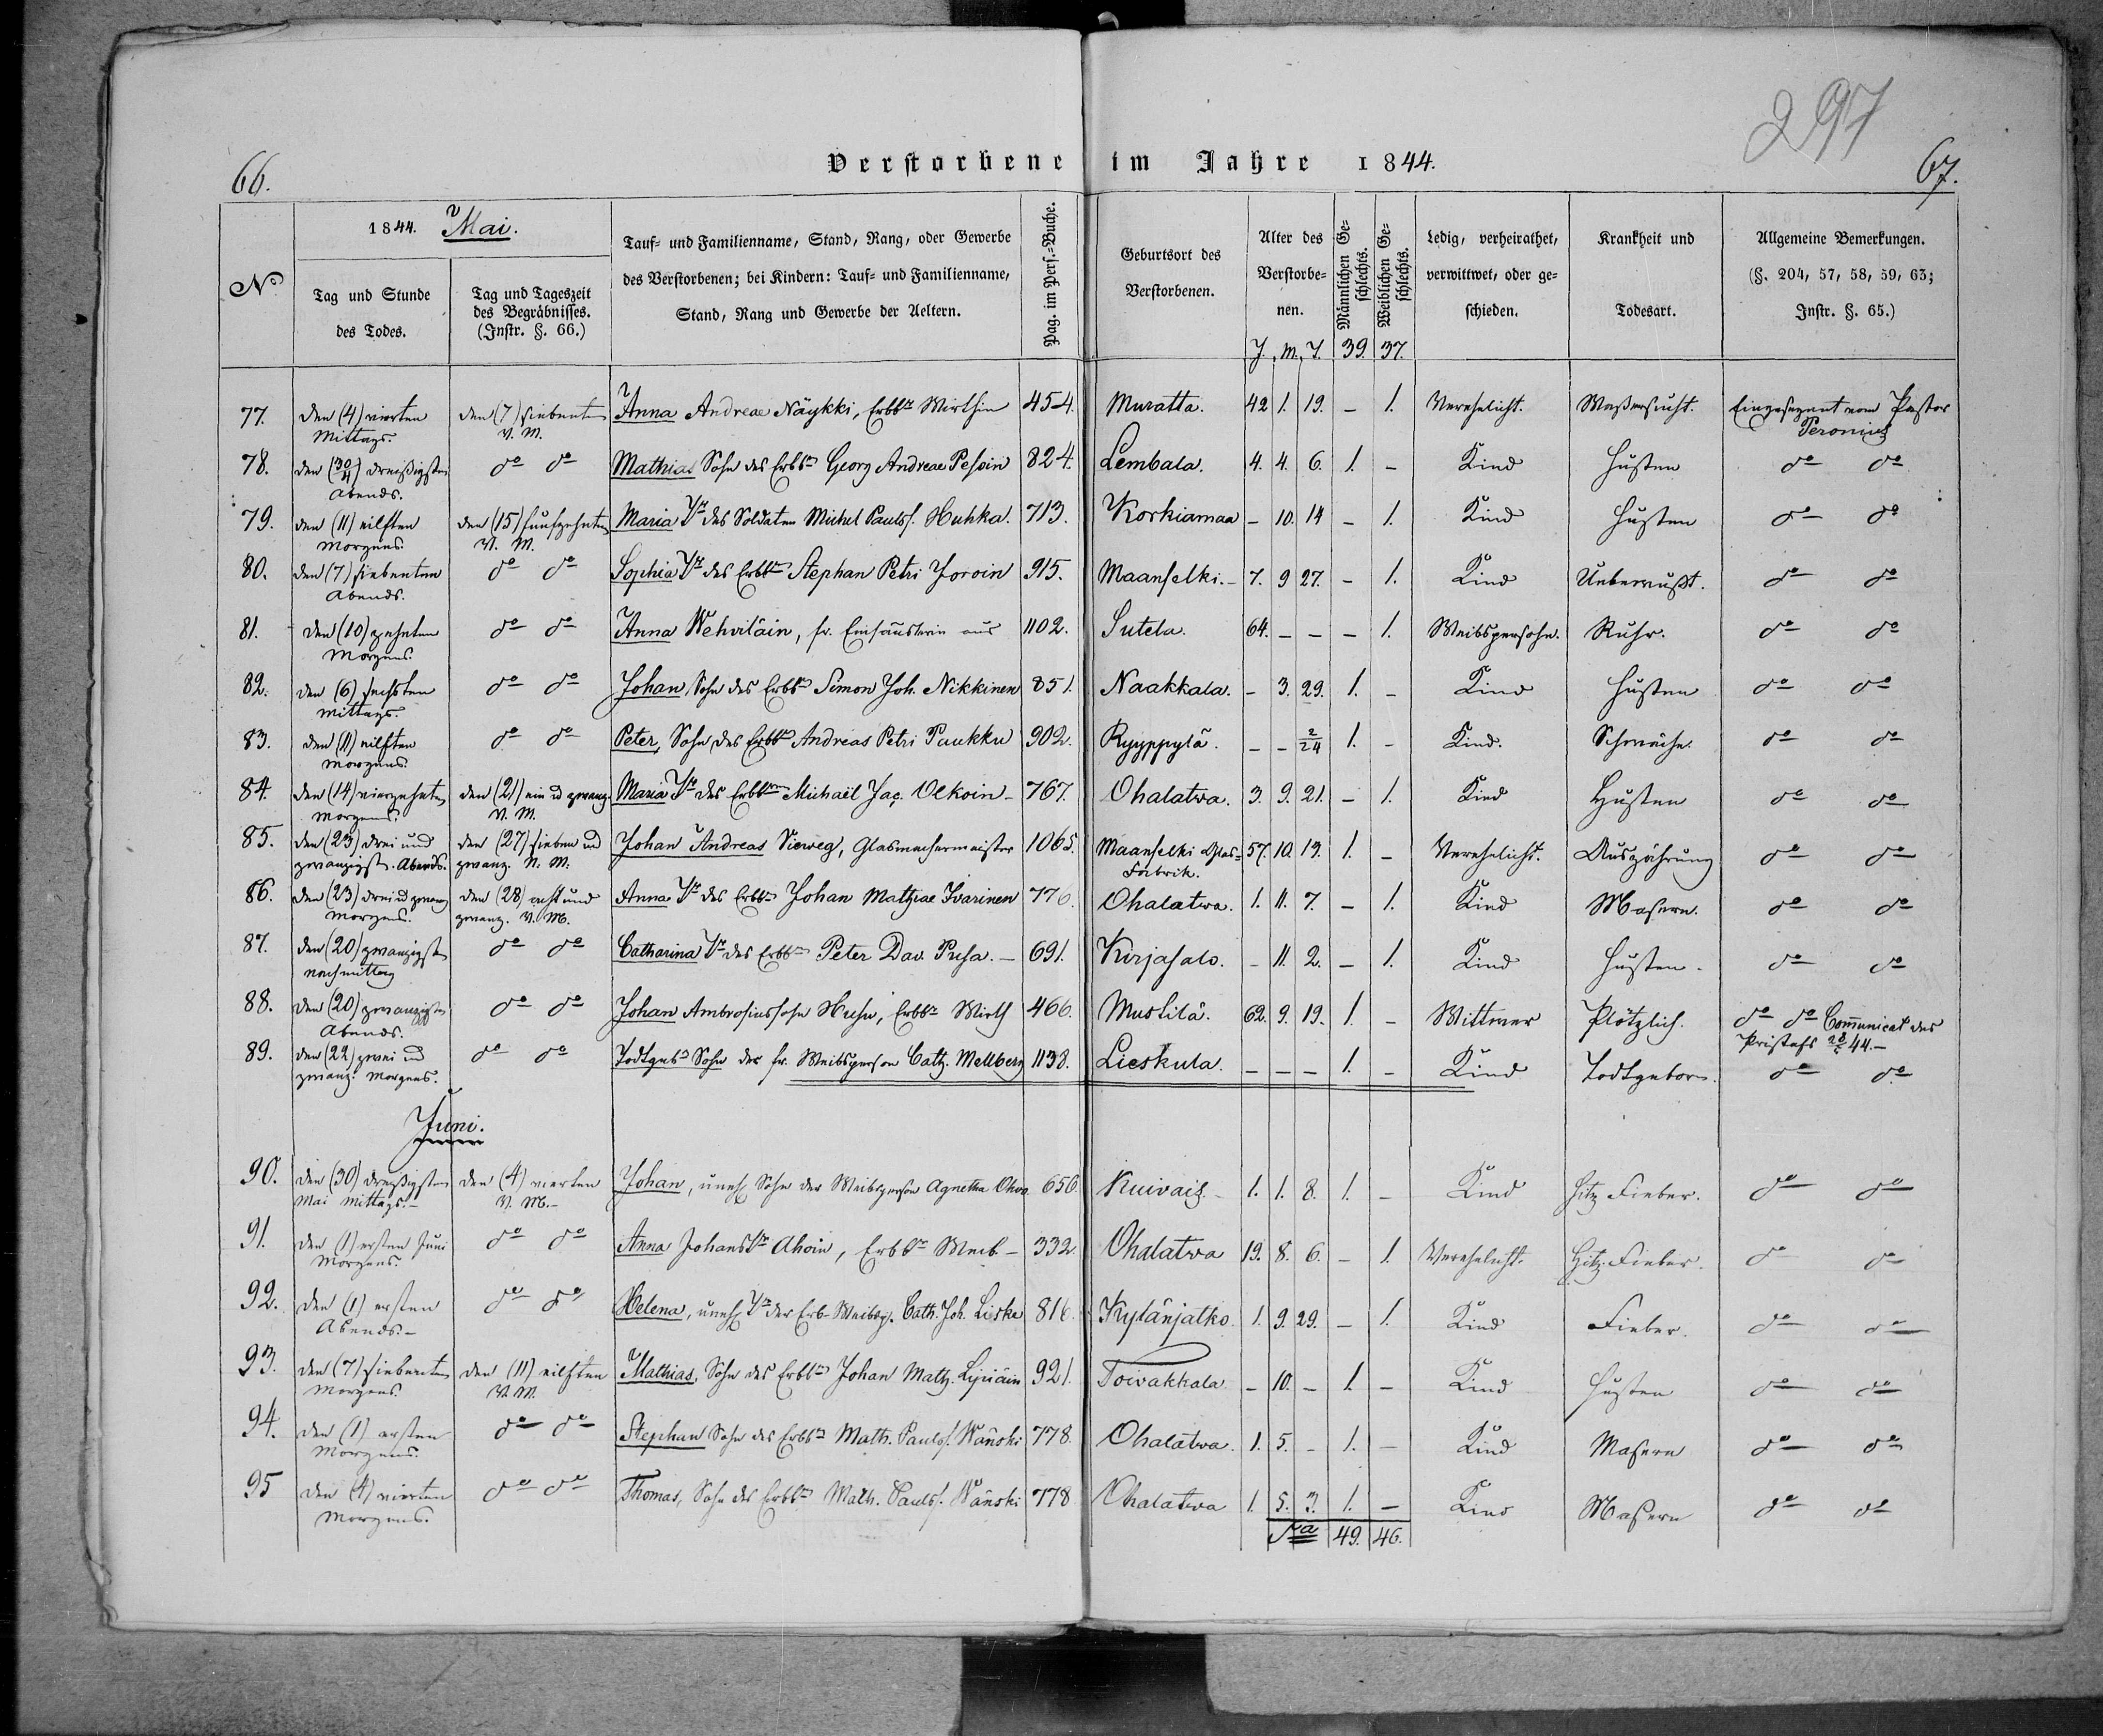 297
66.
Verstorbene im Jahre 1844.
67.
No
1844. Mai.
Tag und Stunde des Todes.
Tag und Tageszeit des Begräbnisses. (Instr. §. 66.)
Tauf= und Familienname, Stand, Rang, oder Gewerbe des Verstorbenen; bei Kindern: Tauf= und Familienname, Stand, Rang und Gewerbe der Aeltern.
Pag. im Pers.=Buche.
Geburtsort des Verstorbenen.
Alter des Verstorbe=nen.
J. M. T.
Männlichen Ge=schlechts. 39.
Weiblichen Ge=schlechts. 37.
Ledig, verheirathet, verwittwet, oder ge=schieden.
Krankheit und Todesart.
Allgemeine Bemerkungen. (§. 204, 57, 58, 59, 63; Instr. §. 65.)
77. den (4) vierten Mittags. den (7) siebenten V. M. Anna Andreae Näykki, Erbbr Wirthin 454. Muratta. 42 1. 19. – 1. Verehelicht. Waßersucht. Eingesegnet vom Pastor Peronius
78. den (30/4) dreißigsten Abends. do do Mathias Sohn des Erbbn Georg Andreae Pesoin 824. Lembala. 4. 4. 6. 1. – Kind Husten do do
79. den (11) eilften Morgens. den (15) funfzehnten V. M. Maria Tr des Soldaten Michel Paulss. Huhka. 713. Korkiamaa – 10. 14 – 1. Kind Husten do do
80. den (7) siebenten Abends. do do Sophia Tr des Erbbn Stephan Petri Joroin 915. Maanselki. – 7. 9 27. – 1. Kind Unbewußt. do do
81. den (10) zehnten Morgens. do do Anna Wehviläin, fr. Einhäuslerin aus 1102. Sutela. 64. – – – 1. Weibsperson. Ruhr. do do
82. den (6) sechsten Mittags. do do Johan, Sohn des Erbbn Simon Joh. Nikkinen 851. Naakkala. – 3. 29. 1. – Kind Husten do do
83. den (11) eilften Morgens. do do Peter, Sohn des Erbbn Andreas Petri Paukku 902. Ryyppylä. – – 2/24 1. – Kind. Schwäche. do do
84. den (14) vierzehnten Morgens. den (21) ein u zwanz. V. M. Maria Tr des Erbbrn Michaël Jac. Olkoin – 767. Ohalatva. 3. 9. 21. – 1. Kind Husten do do
85. den (23) drei und zwanzigst. Abends. den (27) sieben ud zwanz. N. M. Johan Andreas Vieweg, Glasmachermeister 1065. Maanselki Glas=Fabrik. 57. 10. 19. 1. – Verehelicht. Auszährung do do
86. den (23) drei u zwanz Morgens. den (28) acht und zwanz. V. M. Anna Tr des Erbbn Johan Mathiae Ivarinen 776. Ohalatwa. 1. 11. 7. – 1. Kind Masern. do do
87. den (20) zwanzigsten nachmittag do do Catharina Tr des Erbbn Peter Dav. Pusa. – 691. Kirjasalo. – 11. 2. – 1. Kind Husten. do do
88. den (20) zwanzigsten Abends. do do Johan Ambrosiussohn Huhu, Erbbr Wirth 466. Mustilä. 62. 9. 19. 1. – Wittwer Plötzlich. do do Communicat des Pristafs 28/5 44. –
89. den (22) zwei ud zwanz. Morgens. do do Todtgebr Sohn der fr. Weibsperson Cath. Mellberg 1138. Lieskula. – – – 1. – Kind Todtgeboren. do do
Juni.
90. den (30) dreißigsten Mai Mittags. – den (4) vierten V. M. – Johan, unehl Sohn der Weibsperson Agnetha Ohvo 650. Kuivais. – 1. 1. 8. 1. – Kind hitz. Fieber. do do
91. den (1) ersten Juni Morgens. do do Anna Johans Tr Ahoin, Erbbn Weib – 332. Ohalatwa 19. 8. 6. – 1. Verehelicht. Hitz. Fieber. do do
92. den (1) ersten Abends. – do do Helena, unehl Tr der Erb-Weibsp. Cath. Joh. Liska 816. Kylänjatko. 1. 9. 29. – 1. Kind Fieber. do do
93. den (7) siebenten Morgens. den (11) eilften V. M. Mathias, Sohn des Erbbn Johan Math. Lipiäin 921. Toivakkala – 10. – 1. – Kind Husten do do
94. den (1) ersten Morgens. do do Stephan Sohn des Erbbn Math. Paulss. Wänski 778. Ohalatva. 1. 5. – 1. – Kind Masern do do
95 den (4) vierten Morgens. do do Thomas, Sohn des Erbbn Math. Paulss. Wänski 778 Ohalatwa 1. 5. 3. 1. – Kind Masern do do
Sa 49. 46.